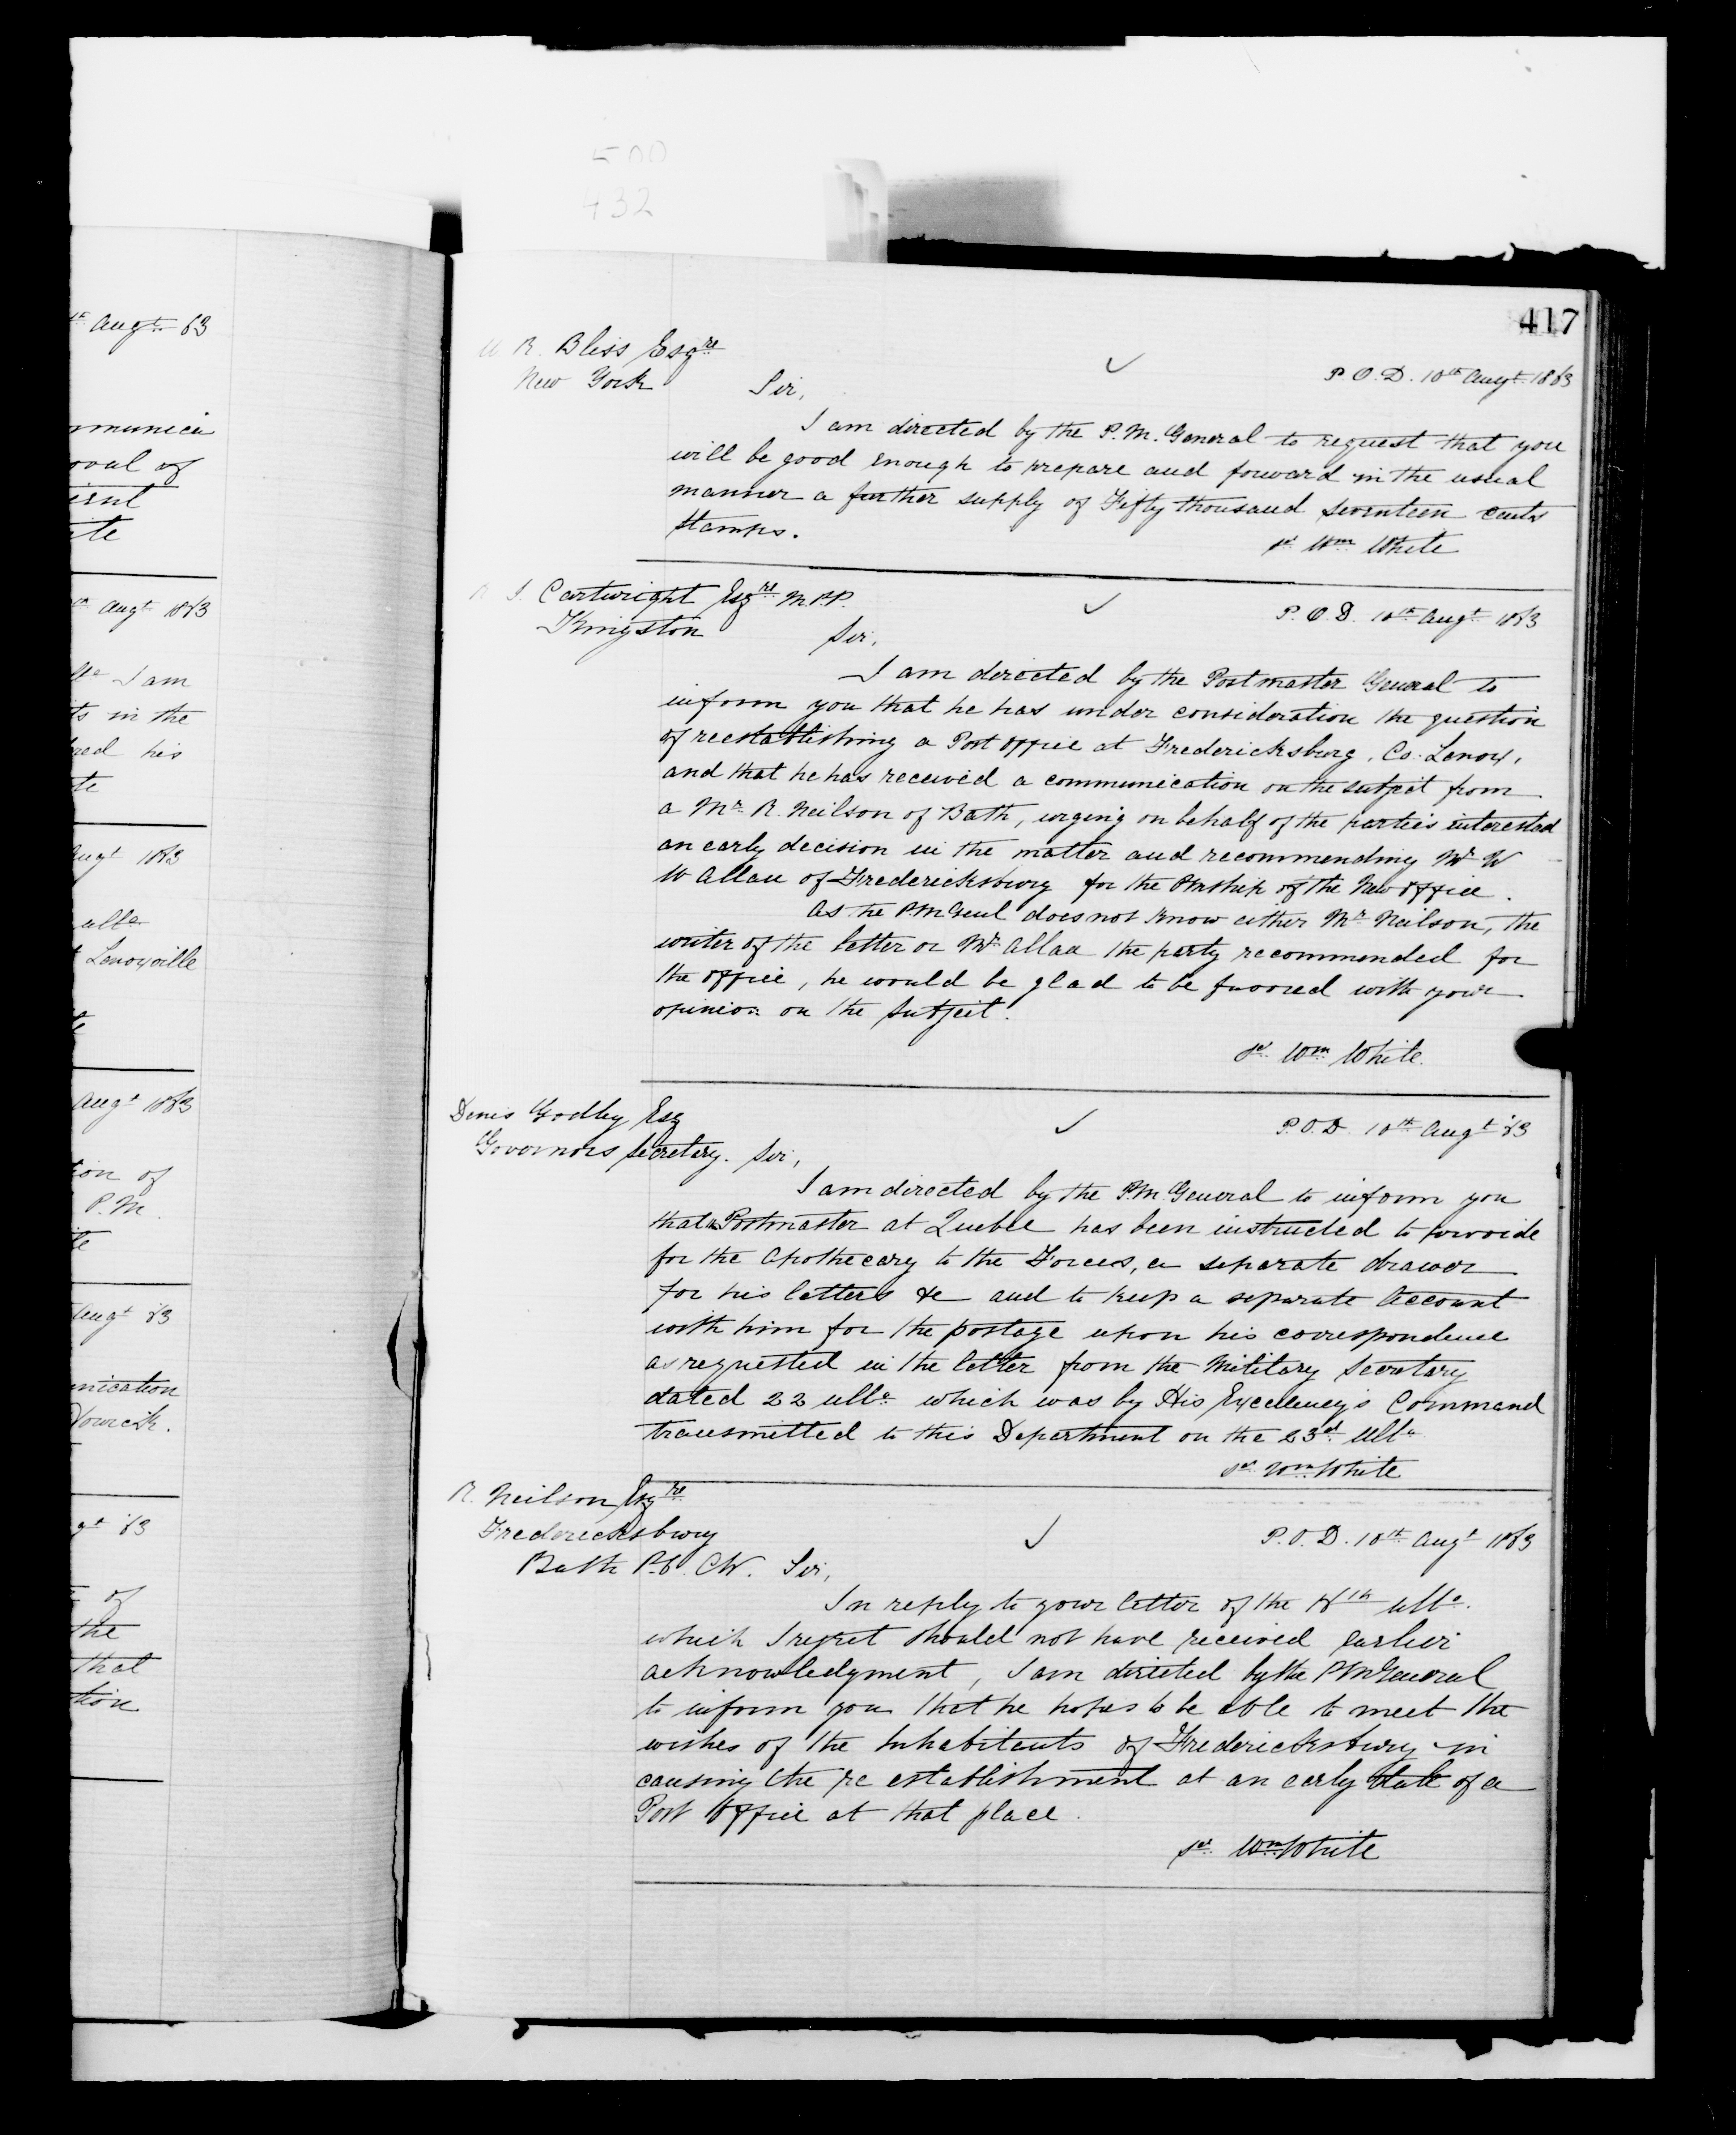 500
432
417
W R. Bliss Esqre
New York
P.O.D. 10th Augt 1863
Sir,
I am directed by the P.M. General to request that you
will be good enough to prepare and forward in the usual
manner a further supply of Fifty thousand seventeen cents
stamps.
sd Wm White
R J. Cartwright Esqre M.P.P.
Kingston
P.O.D. 10th Augt 1863
Sir,
I am directed by the Postmaster General to
inform you that he has under consideration the question
of reestablishing a Post Office at Fredericksburg, Co. Lenox,
and that he has received a communication on the subject from
a Mr R. Neilson of Bath, urging on behalf of the parties interested
an early decision in the matter and recommending Mr W
W Allan of Fredericksburg for the PMship of the New Office.
As the PM Genl does not know either Mr Neilson, the
writer of the letter or Mr Allan the party recommended for
the office, he would be glad to be favored with your
opinion on the subject.
sd Wm White.
Denis Godley Esq
Governors Secretary.
P.O.D. 10th Augt 63
Sir,
I am directed by the P.M. General to inform you
that Postmaster at Quebec has been instructed to provide
for the Apothecary to the Forces, a separate drawer
for his letters &c and to keep a separate Account
with him for the postage upon his correspondence
as requested in the letter from the Military Secretary
dated 22 ulto which was by His Excellency's Command
transmitted to this Department on the 23d ulto
sd Wm White
R. Neilson Esqre
Fredericksburg
Bath P.O. C.W.
P.O.D. 10th Augt 1863
Sir,
In reply to your letter of the 18th ulto.
which I regret should not have received earlier
acknowledgment, I am directed by the PM General
to inform you that he hopes to be able to meet the
wishes of the Inhabitants of Fredericksburg in
causing the re establishment at an early date of a
Post Office at that place.
sd Wm White
Augt 63
oval of
Augt 1863
I am
ts in the
his
Augt 1863
ulto
Lenoxville
Augt 1863
tion of
P.M.
Augt 63
63
of
the
that
tion